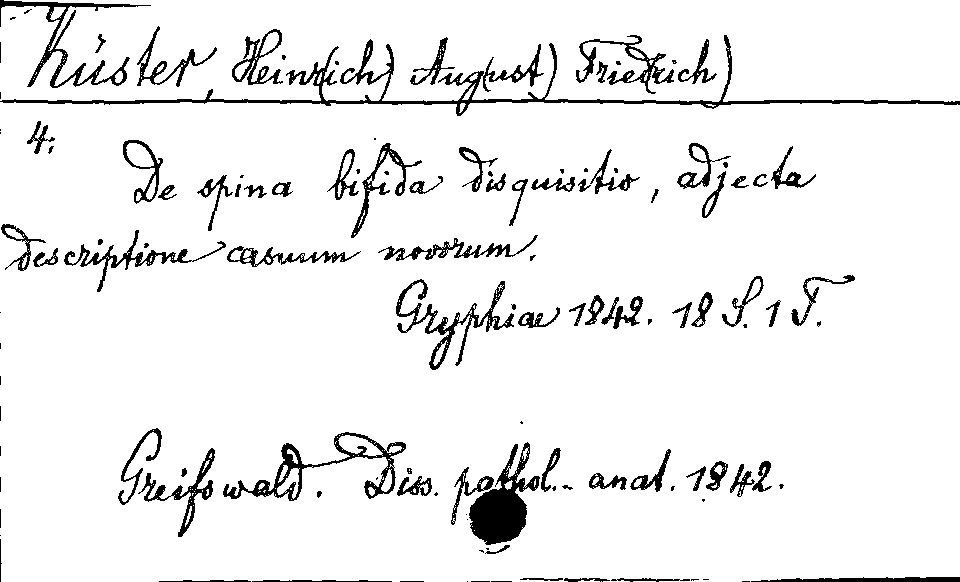 Küster, Hein(rich) Aug(ust) Fried(rich)
4:
De spina bifida disquisitio, adjecta
descriptione casuum novorum.
Gryphiae 1842. 18 S. 1 T.
Greifswald. Diss. pathol.- anat. 1842.